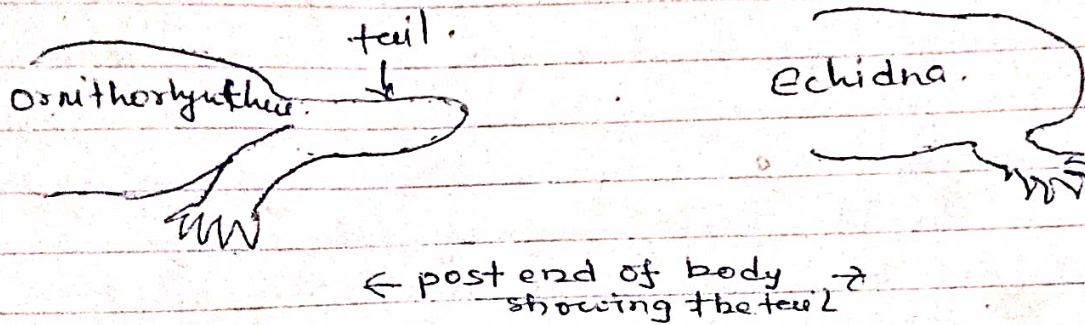 tail.
Ornithorhynthus.
Echidna.
← post end of body →
showing the tail